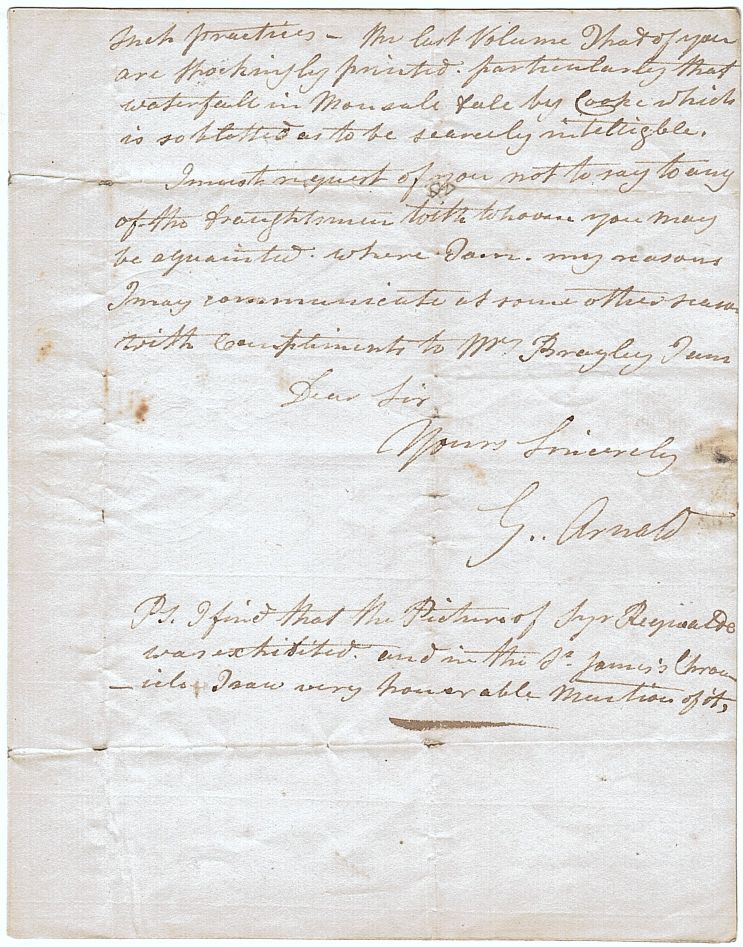 such practices – the last Volume I had of you
are shockingly printed. particularly that
waterfall in Monsale dale by Cooke which
is so blotted as to be scarcely intelligble.
I must request of you not to say to any
of the draughtsmen with whoom you may
be aquainted. where I am. my reasons
I may communicate at some other season
with Compliments to Mrs Brayley I am
Dear Sir
Yours Sincerely
G. Arnald
Ps. I find that the Picture of Syr Reginalde
was exhibited. and in the St. James's Chron
–icle I saw very honorable Mention of it,